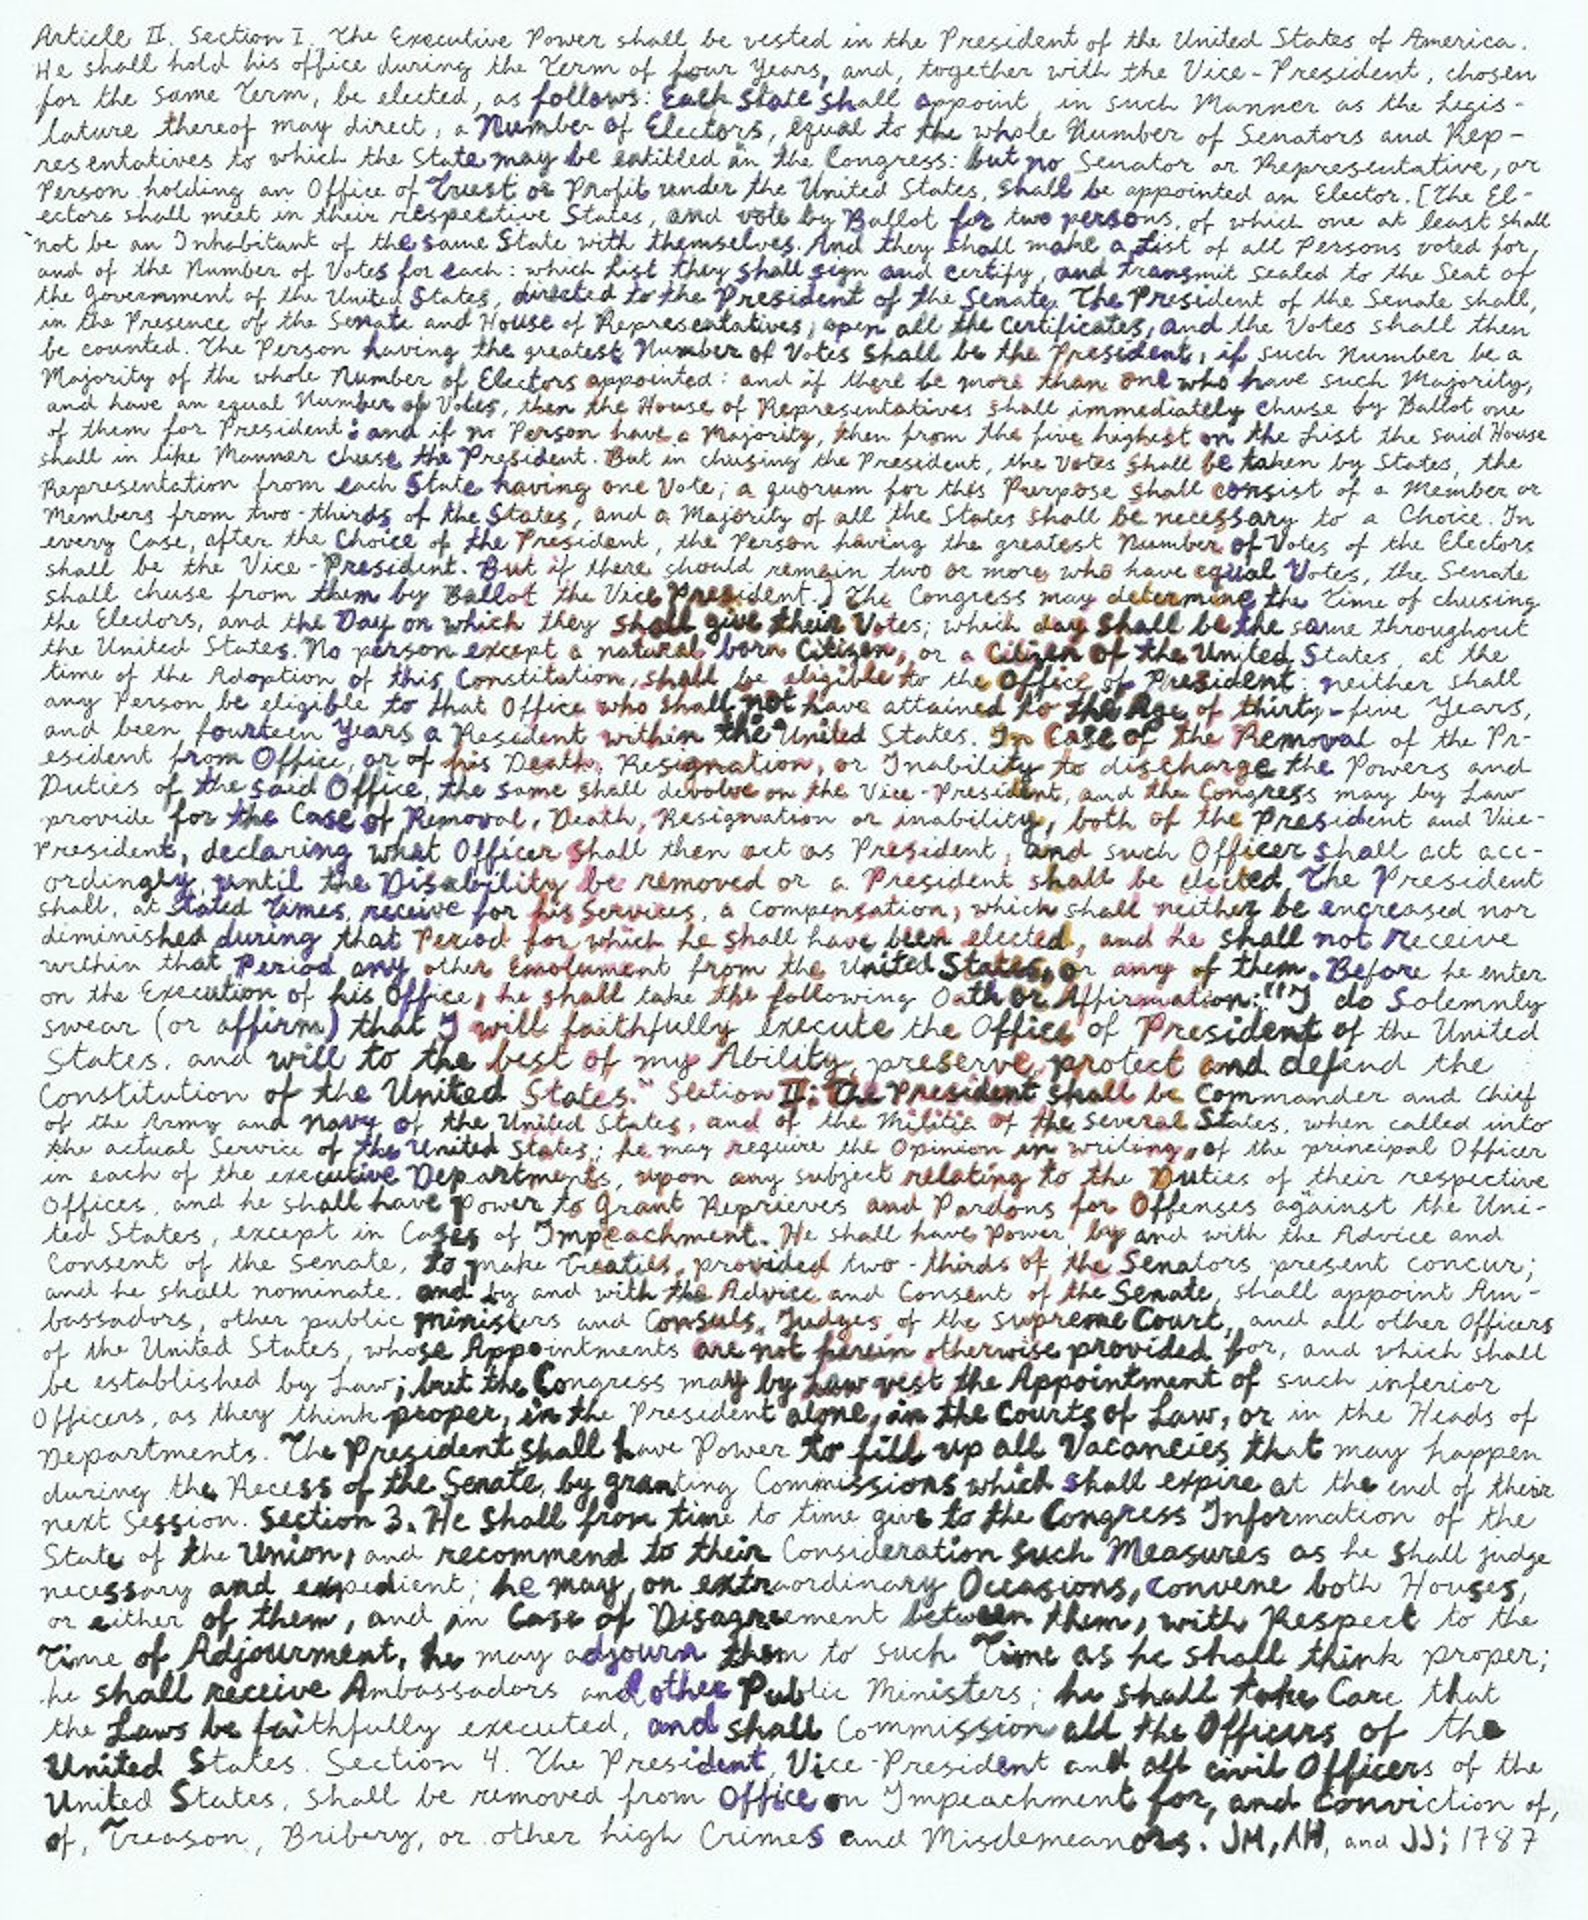 Article II. Section I. The Executive Power shall be vested in the President of the United States of America.
He shall hold his office during the Term of four Years, and, together with the Vice-President, chosen
for the same Term, be elected, as follows: Each State shall appoint, in such Manner as the Legis-
lature thereof may direct, a Number of Electors, equal to the whole Number of Senators and Rep-
resentatives to which the State may be entitled in the Congress: but no Senator or Representative, or
Person holding an Office of Trust or Profit under the United States, shall be appointed an Elector. [The El-
ectors shall meet in their respective States, and vote by Ballot for two persons, of which one at least shall
not be an Inhabitant of the same State with themselves. And they shall make a List of all Persons voted for,
and of the Number of Votes for each: which List they shall sign and certify, and transmit sealed to the Seat of
the Government of the United States, directed to the President of the Senate. The President of the Senate shall,
in the Presence of the Senate and House of Representatives, open all the Certificates, and the Votes shall then
be counted. The Person having the greatest Number of Votes shall be the President, if such Number be a
Majority of the whole Number of Electors appointed: and if there be more than one who have such Majority,
and have an equal Number of Votes, then the House of Representatives shall immediately chuse by Ballot one
of them for President: and if no Person have a Majority, then from the five highest on the List the said House
shall in like Manner chuse the President. But in chusing the President, the Votes shall be taken by States, the
Representation from each State having one Vote; a quorum for this Purpose shall consist of a Member or
Members from two-thirds of the States, and a Majority of all the States shall be necessary to a Choice. In
every Case, after the Choice of the President, the Person having the greatest Number of Votes of the Electors
shall be the Vice-President. But if there should remain two or more who have equal Votes, the Senate
shall chuse from them by Ballot the Vice President.] The Congress may determine the Time of chusing
the Electors, and the Day on which they shall give their Votes; which day shall be the same throughout
the United States. No person except a natural born Citizen, or a Citizen of the United States, at the
time of the Adoption of this Constitution, shall be eligible to the Office of President; neither shall
any Person be eligible to that Office who shall not have attained to the Age of thirty-five Years,
and been fourteen Years a Resident within the United States. In Case of the Removal of the Pr-
esident from Office, or of his Death, Resignation, or Inability to discharge the Powers and
Duties of the said Office, the same shall devolve on the Vice-President, and the Congress may by Law
provide for the Case of Removal, Death, Resignation or inability, both of the President and Vice-
President, declaring what Officer shall then act as President, and such Officer shall act acc-
ordingly, until the Disability be removed or a President shall be elected. The President
shall, at stated Times, receive for his Services, a Compensation, which shall neither be encreased nor
diminished during that Period for which he shall have been elected, and he shall not receive
within that Period any other Emolument from the United States, or any of them. Before he enter
on the Execution of his Office, he shall take the following Oath or Affirmation: "I do Solemnly
swear (or affirm) that I will faithfully execute the Office of President of the United
States, and will to the best of my Ability, preserve, protect and defend the
Constitution of the United States." Section II: The President shall be Commander and Chief
of the Army and Navy of the United States, and of the Militia of the several States, when called into
the actual Service of the United States; he may require the Opinion in writing, of the principal Officer
in each of the executive Departments, upon any subject relating to the Duties of their respective
Offices, and he shall have Power to Grant Reprieves and Pardons for Offenses against the Uni-
ted States, except in Cases of Impeachment. He shall have Power, by and with the Advice and
Consent of the Senate, to make Treaties, provided two-thirds of the Senators present concur;
and he shall nominate, and by and with the Advice and Consent of the Senate, shall appoint Am-
bassadors, other public ministers and Consuls, Judges of the Supreme Court, and all other Officers
of the United States, whose Appointments are not herein otherwise provided for, and which shall
be established by Law; but the Congress may by Law vest the Appointment of such inferior
Officers, as they think proper, in the President alone, in the Courts of Law, or in the Heads of
Departments. The President shall have Power to fill up all Vacancies that may happen
during the Recess of the Senate, by granting Commissions which shall expire at the end of their
next Session. Section 3. He shall from time to time give to the Congress Information of the
State of the Union, and recommend to their Consideration such Measures as he shall judge
necessary and expedient; he may, on extraordinary Occasions, convene both Houses,
or either of them, and in Case of Disagreement between them, with Respect to the
Time of Adjourment, he may adjourn them to such Time as he shall think proper;
he shall receive Ambassadors and other Public Ministers; he shall take Care that
the Laws be faithfully executed, and shall Commission all the Officers of the
United States. Section 4. The President, Vice-President and all civil Officers of the
United States, shall be removed from Office on Impeachment for, and Conviction of,
of, Treason, Bribery, or other high Crimes and Misdemeanors. JM, AH, and JJ; 1787